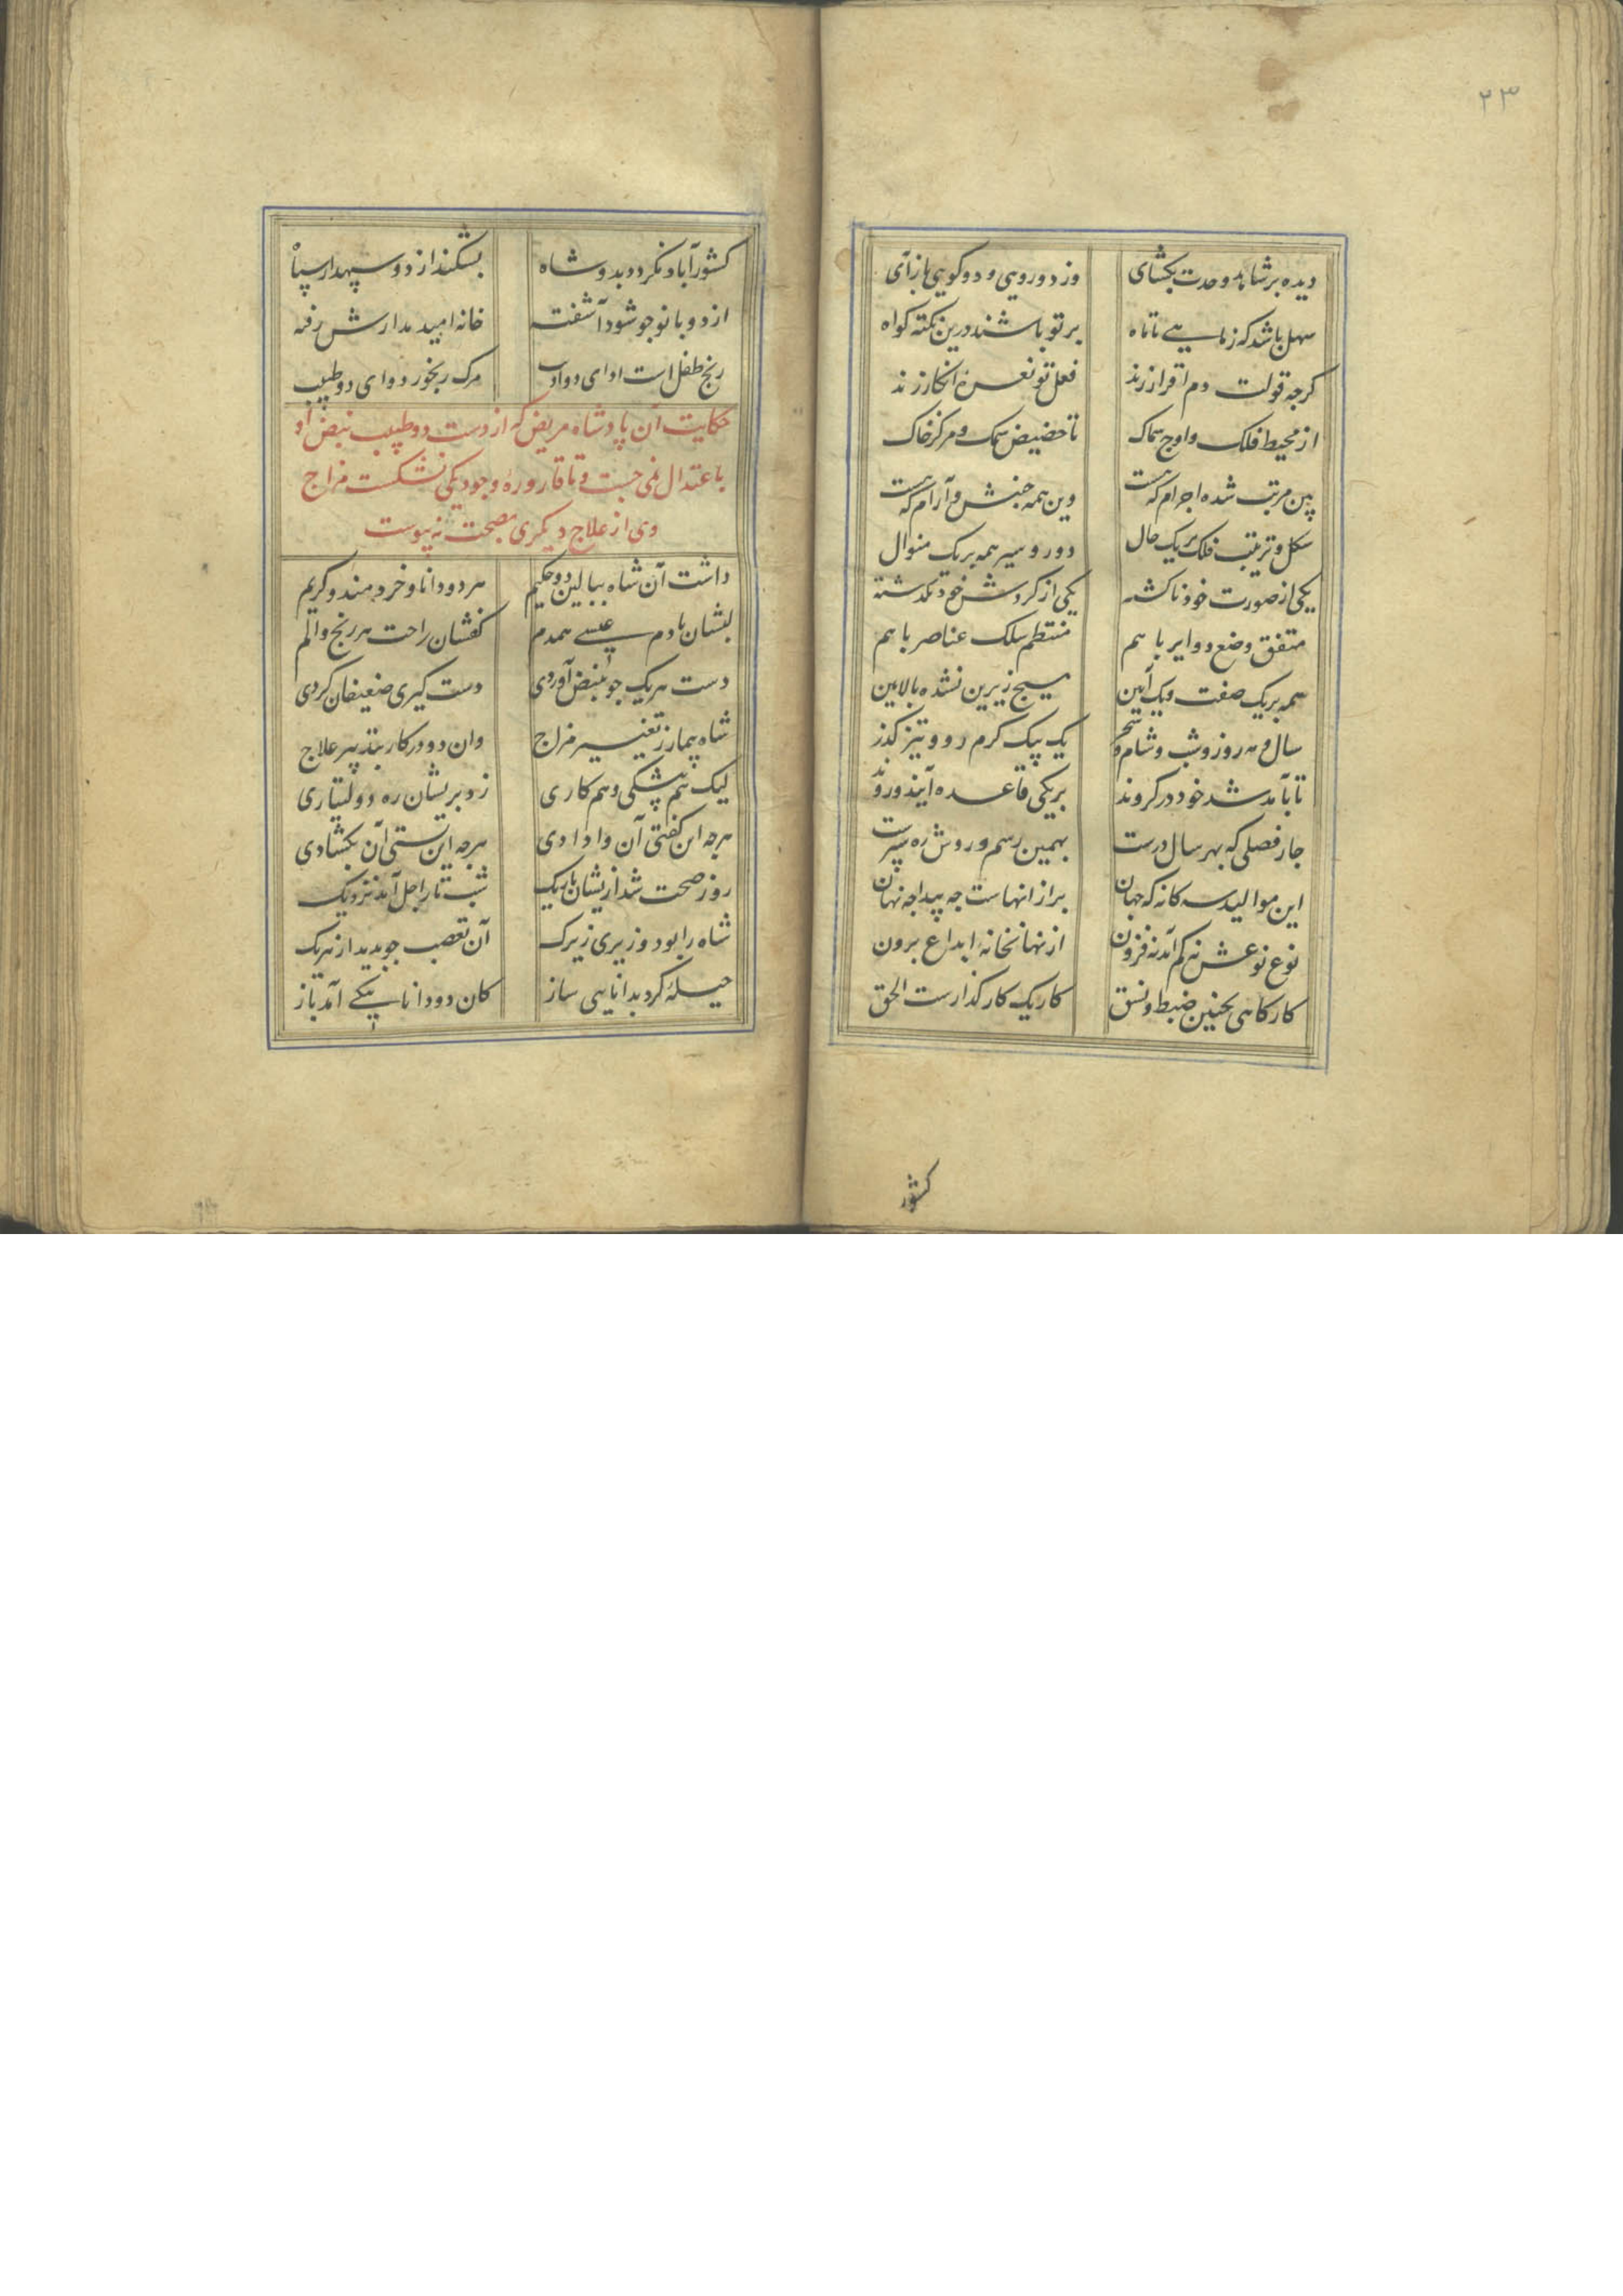 ۲۳
دیده بر شاهد وحدت بکشای وز دورویی و دوکویی بازآی
سهل باشد که ز ماهی تا ماه بر تو باشند درین نکته کواه
کرجه قولت دم اقرار زند فعل تو نعره انکار زند
از محیط فلک و اوج سماک تا حضیض سمک و مرکز خاک
بین مرتب شده اجرام که هست وین همه جنبش و آرام که هست
شکل و ترتیب فلک بر یک حال دور و سیر همه بر یک منوال
یکی از صورت خود ناکشته یکی از کردش خود نکذشته
متفق وضع دوایر با هم منتظم سلک عناصر با هم
همه بر یک صفت و یک آیین هیچ زیرین نشده بالایین
سال و مه روز و شب و شام و سحر یک بیک کرم رو و تیز کذر
تا بآمد شد خود در کروند بر یکی قاعده آیند و روند
جار فصلی که بهر سال درست بهمین رسم و روش ره سپرست
این موالید سه کانه که جهان بر از انهاست جه پیدا جه نهان
نوع نوعش نه کم آمد نه فزون از نهانخانه ابداع برون
کارکاهی بچنین ضبط و نسق کار یک کارکذارست الحق
کشور
کشور آباد نکردد بدو شاه بشکند از دو سپهدار سپاه
از دو بانو جو شود آشفته خانه امید مدارش رفته
رنج طفل است ادای دو ادیب مرک رنجور دوای دو طبیب
حکایت آن پادشاه مریض که از دست دو طبیب نبض او
باعتدال نمی جست و تا قاروره وجود یکی نشکست مزاج
وی از علاج دیکری بصحت نه پیوست
داشت آن شاه ببالین دو حکیم هر دو دانا و خردمند و کریم
لبشان با دم عیسی همدم کفشان راحت هر رنج و الم
دست هر یک جو بنبض آوردی دست کیری ضعیفان کردی
شاه بیمار ز تغییر مزاج وان دو در کار بتدبیر علاج
لیک هم پشکی و هم کاری زد بریشان ره دولتیاری
هرجه این کفتی آن وا دادی هرجه این بستی آن بکشادی
روز صحت شد ازیشان باریک شب تار اجل آمد نزدیک
شاه را بود وزیری زیرک آن تعصب جو بدید از هر یک
حیله کرد بدانایی ساز کان دو دانا بیکی آمد باز